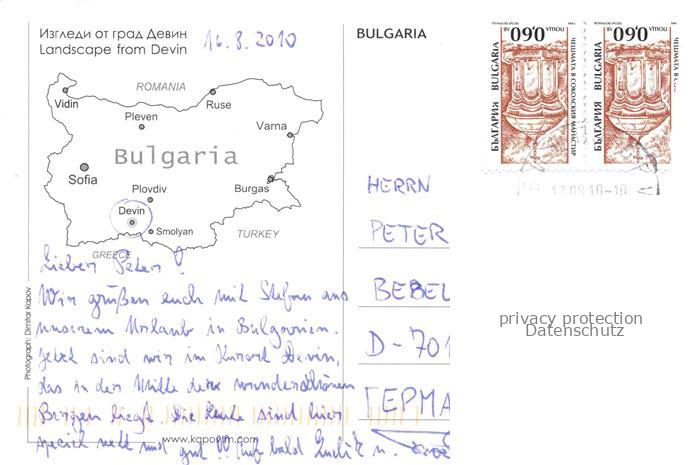 Изгледи от град Девин
Landscape from Devin
16.8.2010
BULGARIA
ROMANIA
Vidin
Ruse
Pleven
Varna
Bulgaria
Sofia
Plovdiv
Burgas
Devin
Smolyan
TURKEY
GREECE
Lieber Peter!
Wir grüßen euch mit Stefan aus
unserem Urlaub in Bulgarien.
Jetzt sind wir im Kurort Devin,
das in der Mitte der wunderschönen
Bergen liegt. Die Leute sind hier
speziell nett und gut!!! Auf bald
Photograph: Dimitar Kapov
www.kapovfm.com
БЪЛГАРИЯ BULGARIA
0,60
ПОЩА
ЧЕШМАТА В СОКОЛСКИЯ МАНАСТИР
БЪЛГАРИЯ BULGARIA
0,60
ПОЩА
ЧЕШМАТА В
17.08.10-10
HERRN
PETER
BEBEL
D-701
ГЕРМА
privacy protection
Datenschutz